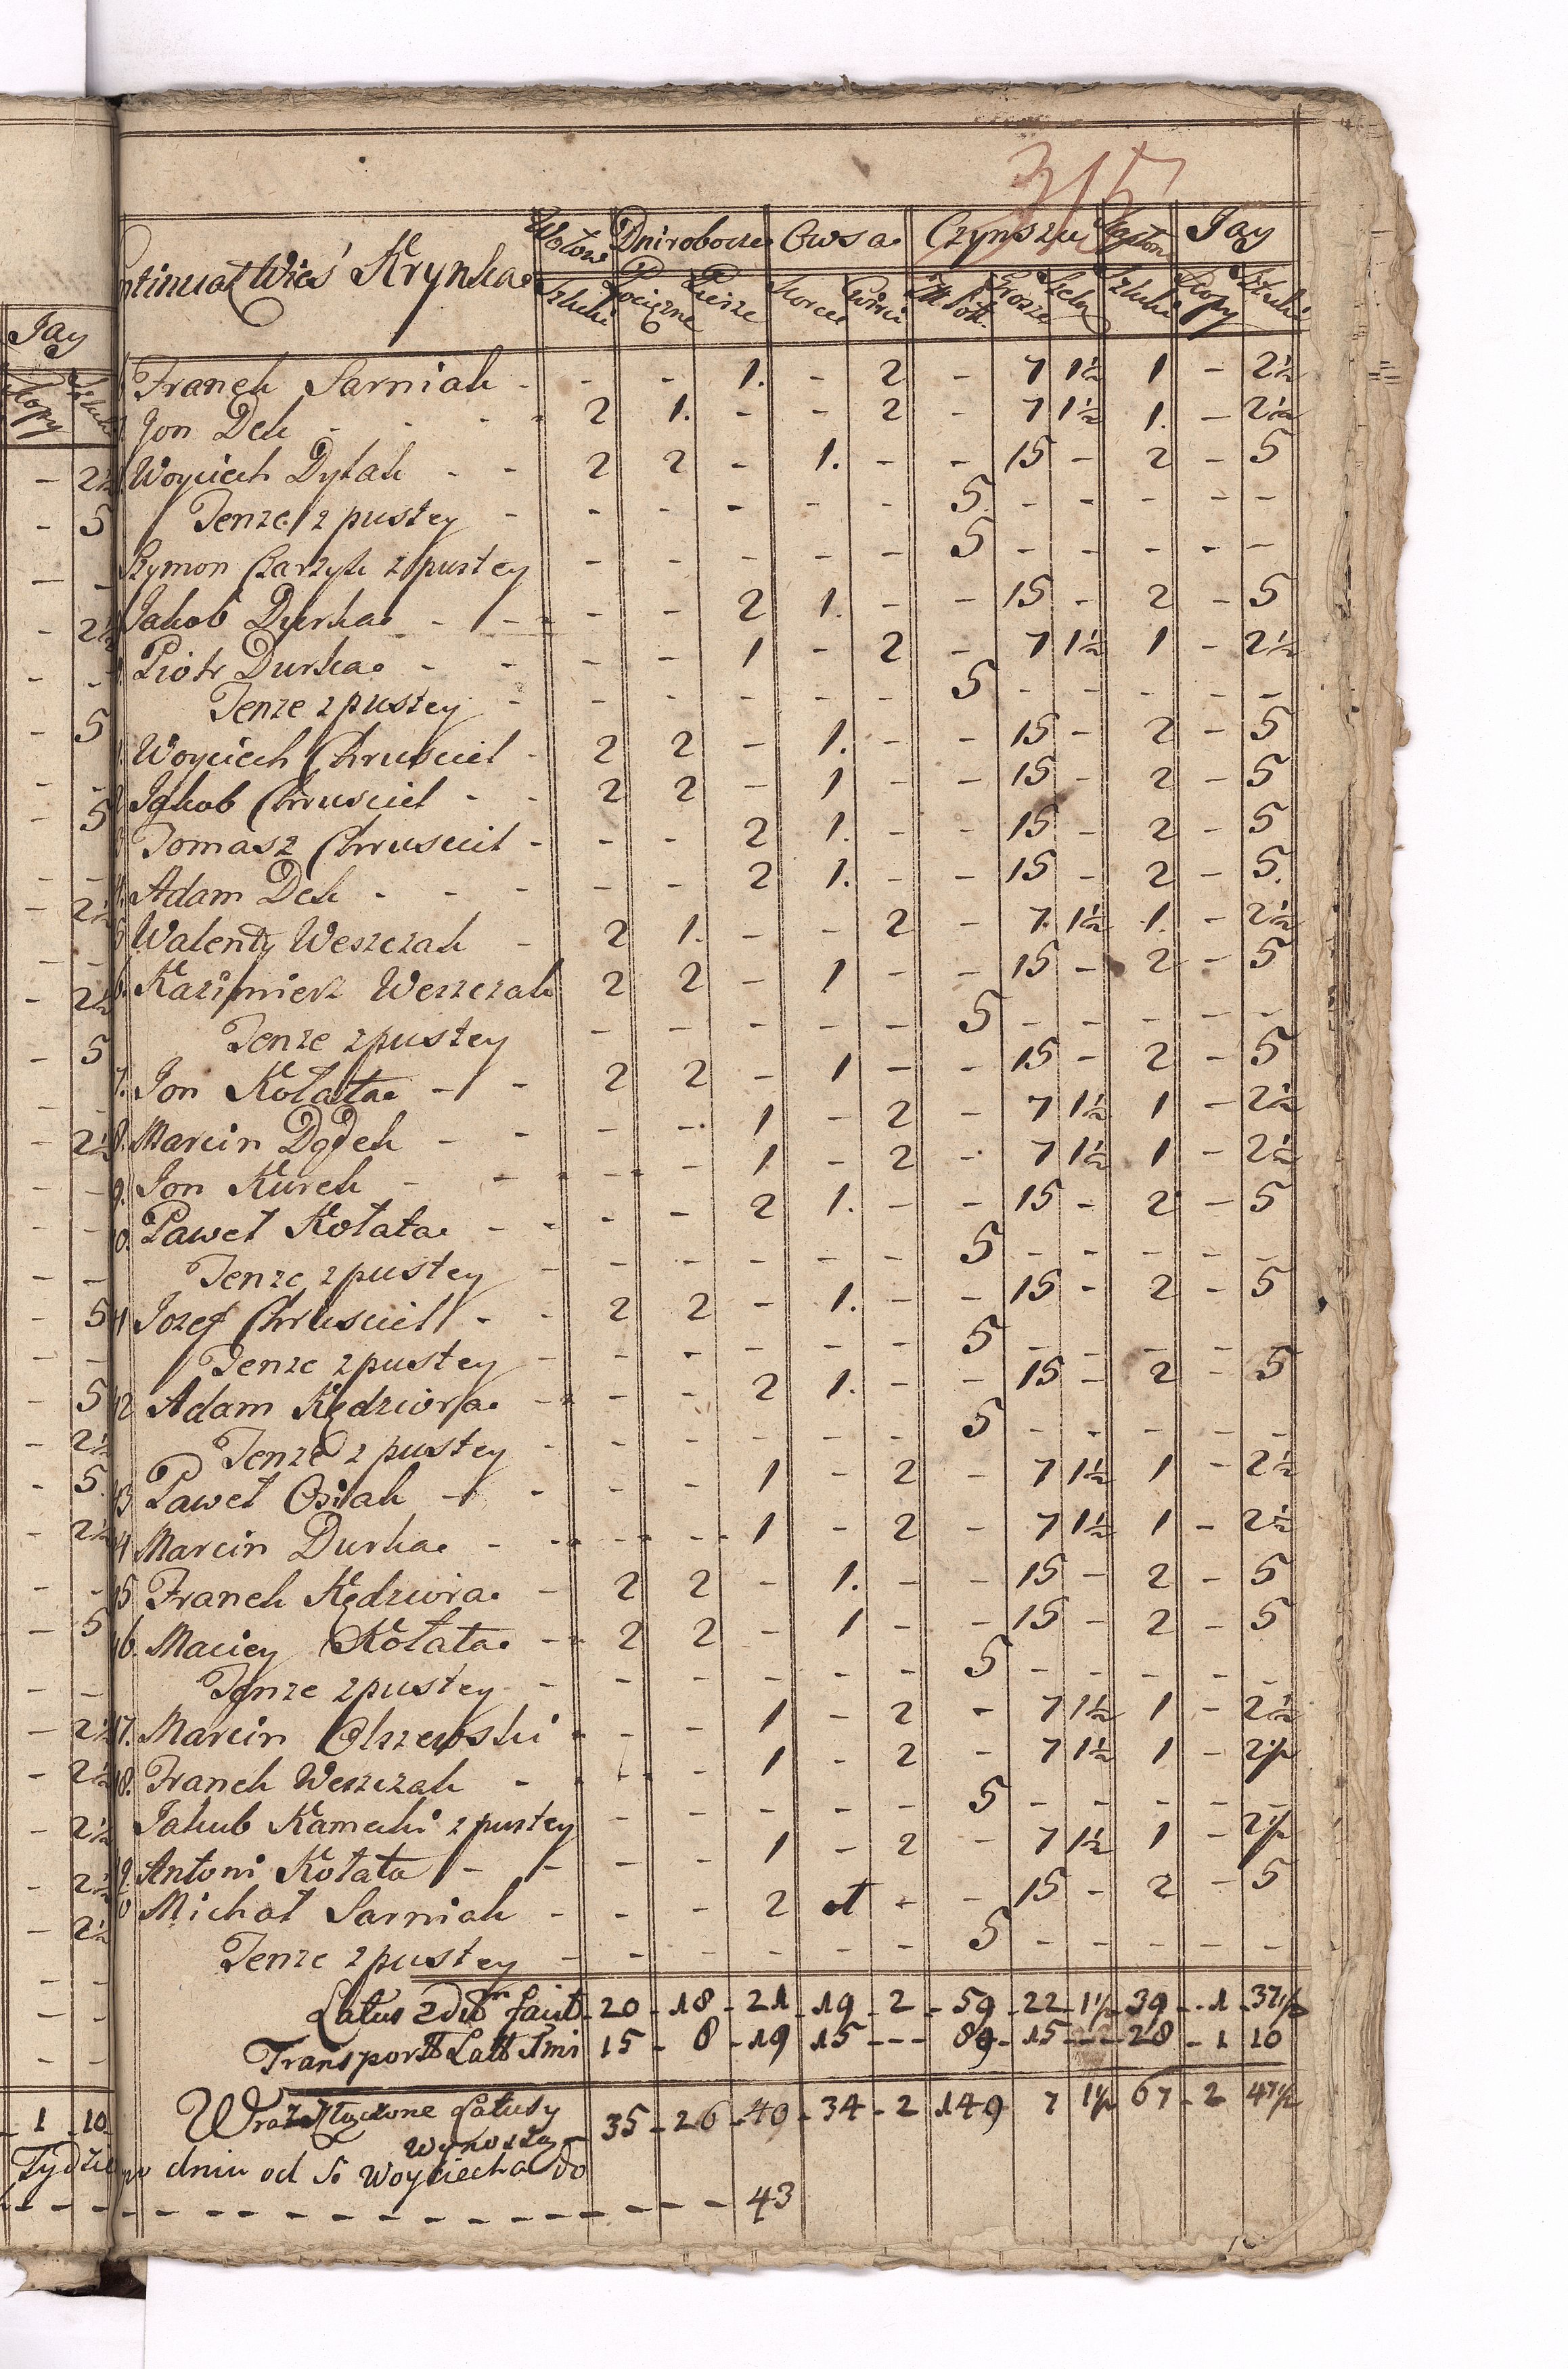 315
Continuat Wieś Krynka
Wołow Dni robocze Owsa Czynszu Kapłon Jay
Sztuki Pocięzne Piesze Korce Cwierci Złote Grosze Szelą Sztuki Kopy Sztuki
Franek Sarniak - - - 1. - 2 - 7 1½ 1 - 2½
Jon Dek - - - 2 1. - - 2 - 7 1½ 1. - 2½
Woyciech Dytak - - 2 2 - 1. - - 15 - 2 - 5
Tenze z pustey - - - - - - 5 - - - - -
Szymon Czarzyk z pustey - - - - - 5 - - - - -
Jakob Durka - - - - 2 1. - - 15 - 2 - 5
Piotr Durka - - - - 1 - 2 - 7 1½ 1 - 2½
Tenze z pustey - - - - - - 5 - - - - -
Woyciech Chrusciel - 2 2 - 1. - - 15 - 2 - 5
Jakob Chrusciel - - 2 2 - 1 - - 15 - 2 - 5
Tomasz Chrusciel - - - 2 1. - - 15 - 2 - 5
4. Adam Dek - - - - - 2 1. - - 15 - 2 - 5.
5 Walenty Weszczak - 2 1. - - 2 - 7. 1½ 1. - 2½
6. Kazimierz Weszczak 2 2 - 1 - - 15 - 2 - 5
Tenze z pustey - - - - - 5 - - - - -
7. Jon Kołata - - 2 2 - 1 - - 15 - 2 - 5
8. Marcin Dołek - - - - 1 - 2 - 7 1½ 1 - 2½
9. Jon Kurek - - - - 1 - 2 - 7 1½ 1 - 2½
0. Paweł Kołata - - - - 2 1. - - 15 - 2 - 5
Tenze z pustey - - - - - - 5 - - - - -
11 Jozef Chrusciel - - 2 2 - 1. - - 15 - 2 - 5
Tenze z pustey - - - - - - 5 - - - - -
12 Adam Kędziora - - - 2 1. - - 15 - 2 - 5
Tenze z pustey - - - - - - 5 - - - - -
13 Paweł Osiak - - - - 1 - 2 - 7 1½ 1 - 2½
14 Marcin Durka - - - - 1 - 2 - 7 1½ 1 - 2½
15 Franek Kędziora - 2 2 - 1. - - 15 - 2 - 5
16. Maciey Kołata - 2 2 - 1 - - 15 - 2 - 5
Tenze z pustey - - - - - - 5 - - - - -
17. Marcin Olszewski - - - 1 - 2 - 7 1½ 1 - 2½
18. Franek Weszczak - - - 1 - 2 - 7 1½ 1 - 2½
Jakub Kamecki z pustey - - - - - 5 - - - - -
19. Antoni Kołata - - - - 1 - 2 - 7 1½ 1 - 2½
0 Michał Sarniak - - - 2 1 - - 15 - 2 - 5
Tenze z pustey - - - - - - 5 - - - - -
Latus 20 - 18 - 21 19 - 2 - 59 - 22 - 1½ 39 - 1 - 37½
Transport Latt 15 - 8 - 19 15 - - - 89 - 15 - - 28 - 1 10
Wraz Złączone Latusy
Wynoszą 35 - 26 - 40 - 34 - 2 149 7 1½ 67 - 2 47½
po dniu od S. Woyciecha do
- - - - - - - - - - - - - 43
Jay
Kopy Sztuki
- 2½
- 5
- -
- 2½
- -
- 5
- -
- 5
- -
- 2½
- -
- 2½
- 5
- -
- 2½
- -
- -
- -
- 5
- -
- 5
- 2½
- 5.
- 2½
- -
- 5
- -
- 2½
- 2½
- 2½
- 2½
- 2½
- -
- -
- -
- 1 10
Tydzie
- - -